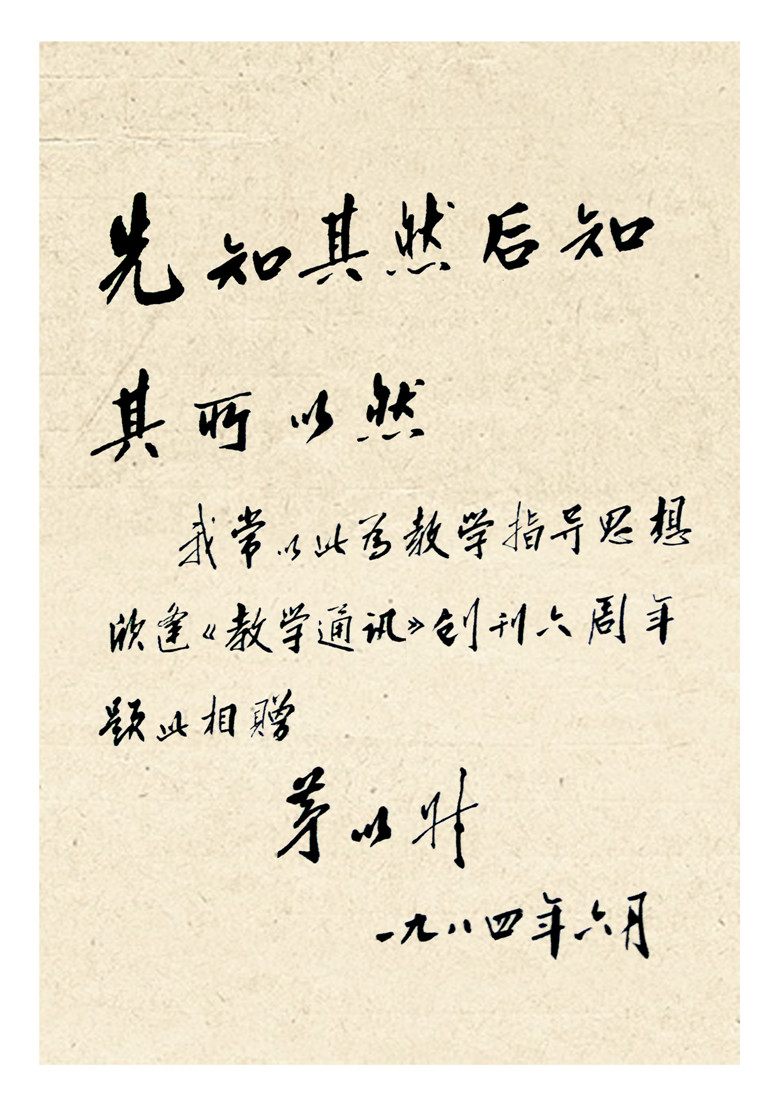 先知其然后知
其所以然
我常以此为教学指导思想
欣逢《教学通讯》创刊六周年
题此相赠
茅以升
一九八四年六月